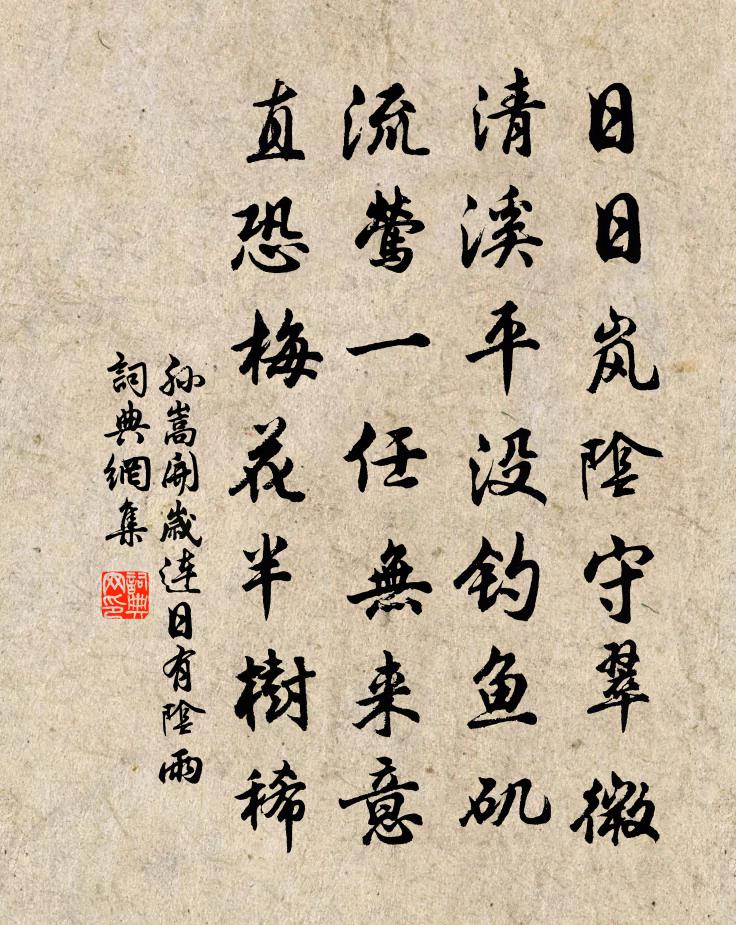 日日岚陰守翠微
清溪平没钓鱼矶
流莺一任無来意
直恐梅花半樹稀
孙嵩開歲连日有陰雨
詞典網集
詞典网印